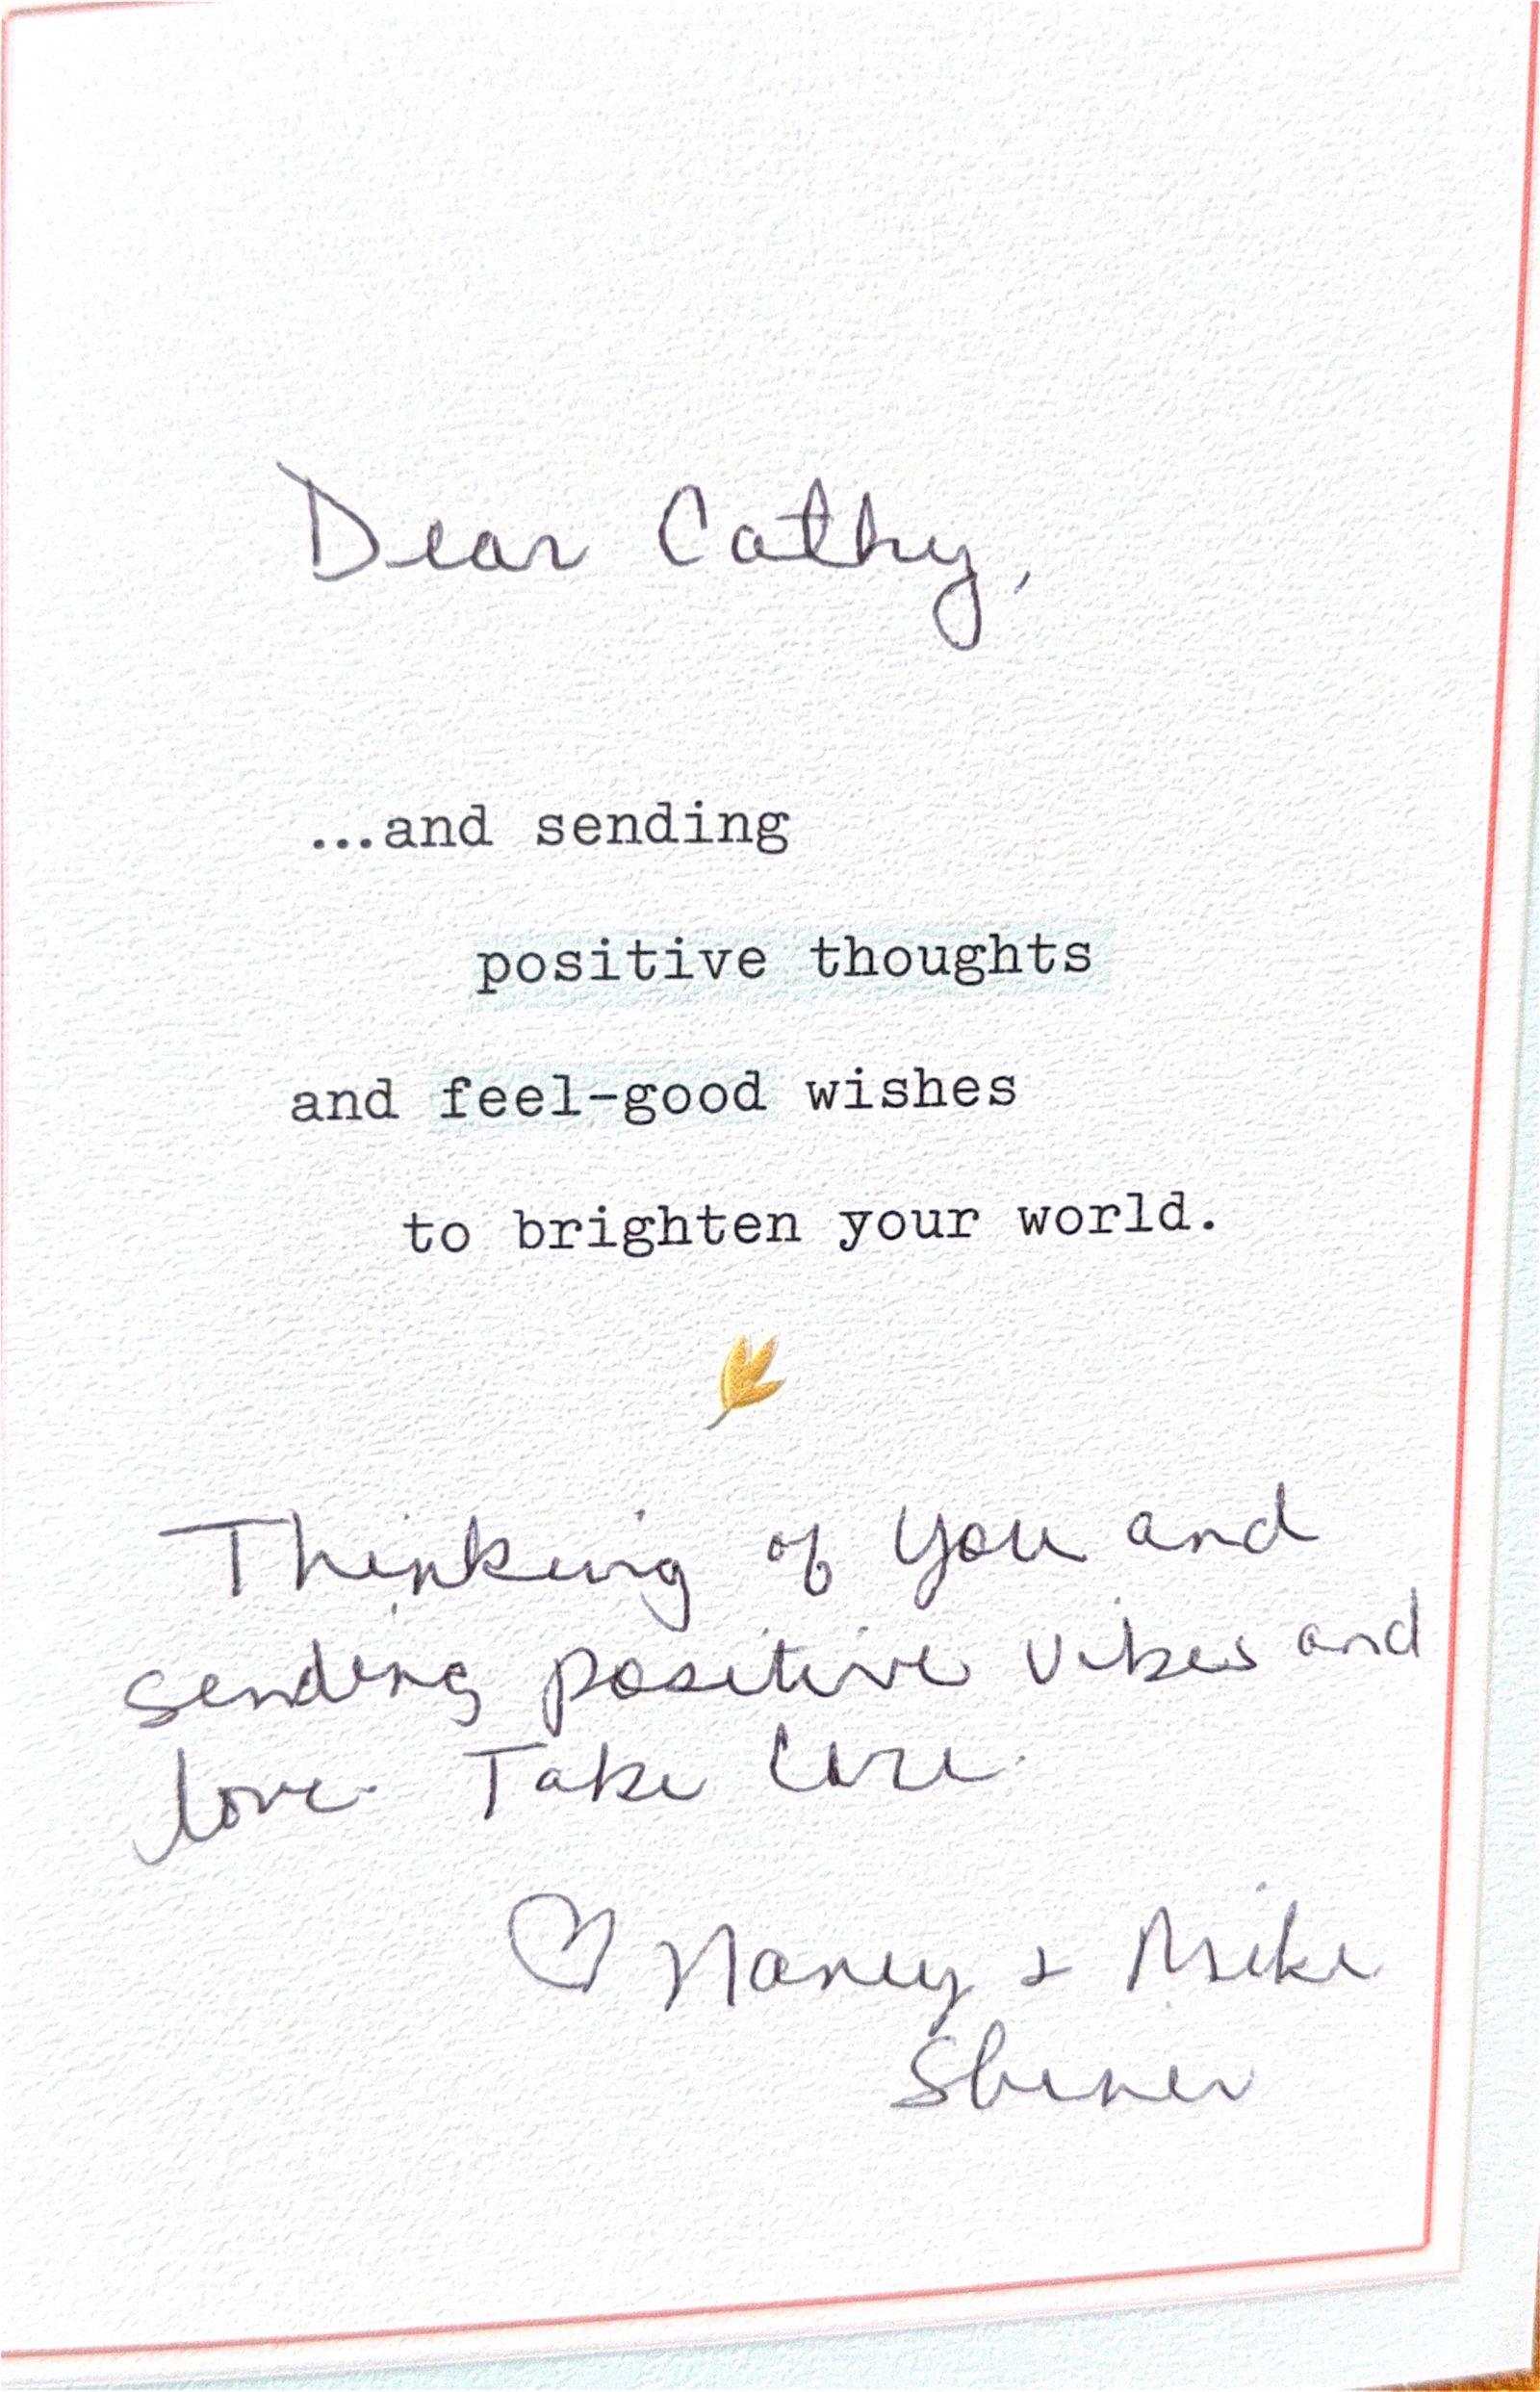 Dear Cathy,
...and sending
positive thoughts
and feel-good wishes
to brighten your world.
Thinking of you and
sending positive vibes and
love. Take Care.
♡ Nancy + Mike